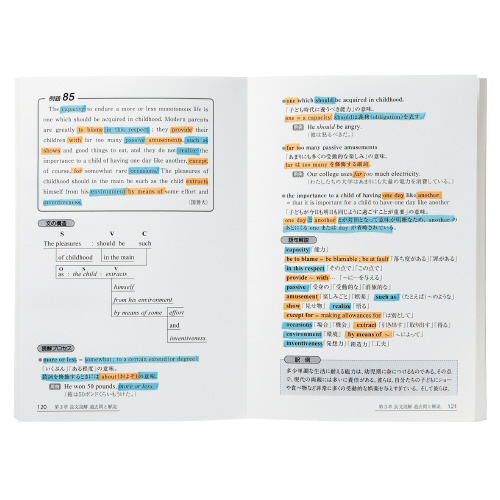 例題 85
The capacity to endure a more or less monotonous life is
one which should be acquired in childhood. Modern parents
are greatly to blame in this respect ; they provide their
children with far too many passive amusements, such as
shows and good things to eat, and they do not realize the
importance to a child of having one day like another, except,
of course, for somewhat rare occasions. The pleasures of
childhood should in the main be such as the child extracts
himself from his environment by means of some effort and
inventiveness.
文の構造
S V C
The pleasures : should be such
of childhood in the main
O S V
as : the child : extracts
himself
from his environment
by means of some effort
and
inventiveness
読解プロセス
more or less = somewhat; to a certain extent (or degree)
「いくぶん」「ある程度」の意味。
数詞を修飾するときには about (およそ) の意味。
He won 50 pounds, more or less.
(彼は50ポンドくらいもうけた。)
120 第3章 長文読解 過去問と解説
one which should be acquired in childhood.
「子ども時代に養うべき能力」の意味。
one = a capacity. should は義務 (obligation) を表す。
He should be angry.
far too many passive amusements
「あまりにも多くの受動的な楽しみ」の意味。
far は too many を修飾する副詞。
Our college uses far too much electricity.
(わたしたちの大学はあまりにも大量の電力を消費している。)
the importance to a child of having one day like another
= that it is important for a child to have one day like another
「子どもが今日も明日も同じように過ごすことが重要」の意味。
one day と another とが対照となって意味が明瞭なため、another の
あとにくる one または day が省略されている。
語句解説
capacity「能力」
be to blame = be blamable ; be at fault「落ち度がある」「罪がある」
in this respect「その点で」「この点で」
provide ~ with ...「~に…を与える」
passive「受身の」「受動的な」「消極的な」
amusement「楽しみごと」「娯楽」 such as「(たとえば)~のような」
show「見せ物」 realize「悟る」
except for = making allowances for「は別として」
occasions「場合」「機会」 extract「引き出す」「取り出す」「得る」
environment「環境」 by means of ~「~によって」
inventiveness「発想力」「創造力」「工夫」
訳例
多少単調な生活に耐える能力は、幼児期に身につけるものである。その点
で、現代の両親には多いに責任がある。彼らは、自分たちの子どもにショー
や食べ物など非常に多くの受動的な娯楽を与えすぎている。そして彼らは、
第3章 長文読解 過去問と解説 121